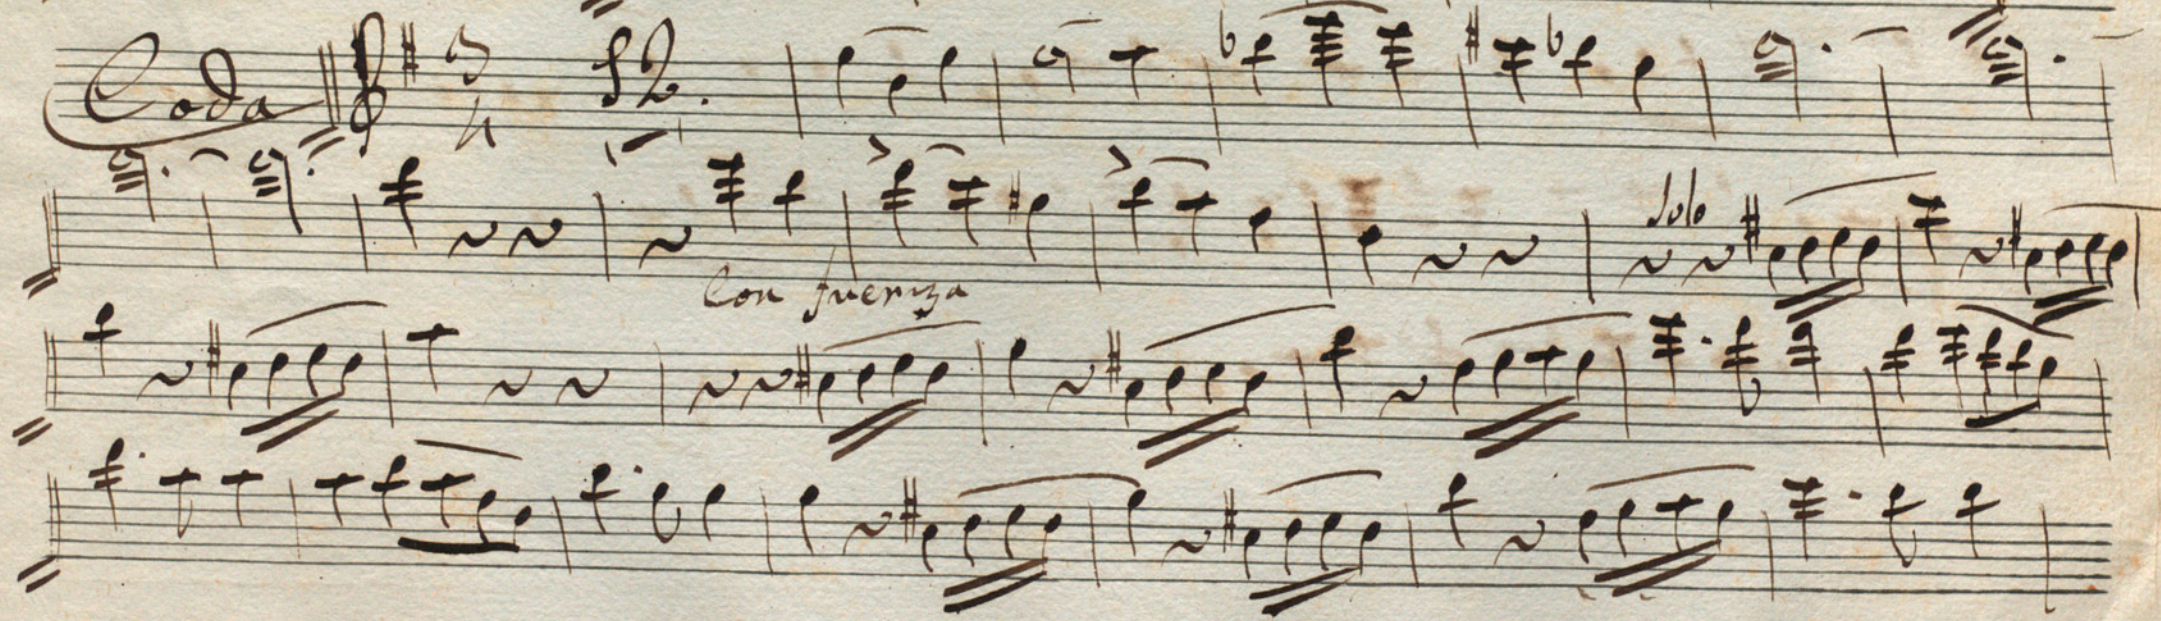 Coda 3/4 12.
Solo
Con fuerza